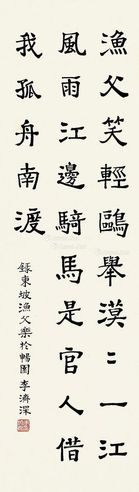 漁父笑輕鷗舉漠〻一江
風雨江邊騎馬是官人借
我孤舟南渡
錄東坡漁父樂於暢園李濟深